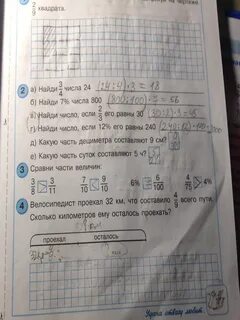 2/9 квадрата.
2 а) Найди 3/4 числа 24 (24:4)·3=18
б) Найди 7% числа 800 (800:100)·7=56
в) Найди число, если 2/3 его равны 30 (30:2)·3=45
г) Найди число, если 12% его равны 240 (240:12)·100
д) Какую часть дециметра составляют 9 см?
е) Какую часть суток составляют 5 ч?
3 Сравни части величин:
3/8 3/11 7/10 9/10 6% 6/100 4/75 4%
4 Велосипедист проехал 32 км, что составило 4/9 всего пути.
Сколько километров ему осталось проехать?
проехал осталось
Удача отвагу любит